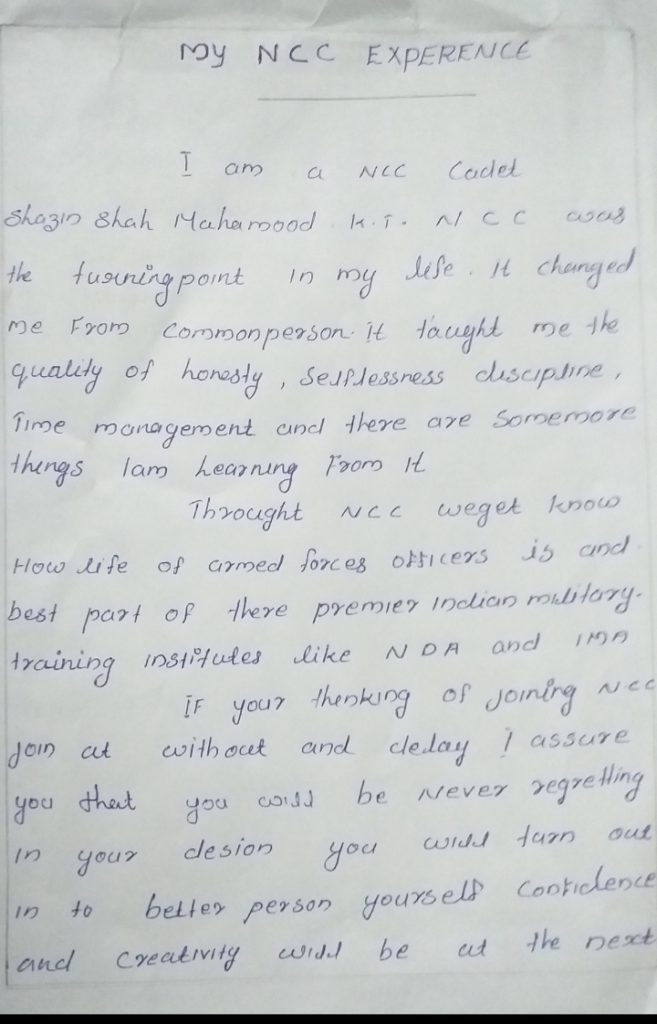 My NCC EXPERENCE
I am a NCC Cadet
Shazin Shah Mahamood K.T. NCC was
the turningpoint in my life. It changed
me From commonperson. it taught me the
quality of honesty, selflessness discipline,
Time management and there are Somemore
things Iam Learning From It
Throught NCC weget know
How life of armed forces officers is and
best part of there premier Indian military-
training institutes like NDA and IMA
IF your thenking of joining NCC
Join at without and delay I assure
you that you will be Never regretting
In your desion you will turn out
in to better person yourself Confidence
and Creativity will be at the next